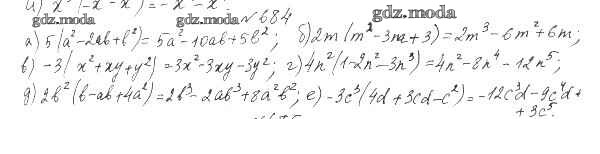 gdz.moda gdz.moda № 684 gdz.moda
а) 5(a²-2ab+b²)=5a²-10ab+5b²; б) 2m(m²-3m+3)=2m³-6m²+6m;
в) -3(x²+xy+y²)=-3x²-3xy-3y²; г) 4n²(1-2n²-3n³)=4n²-8n⁴-12n⁵;
д) 2b²(b-ab+4a²)=2b³-2ab³+8a²b²; е) -3c³(4d+3cd-c²)=-12c³d-9c⁴d+
+3c⁵.